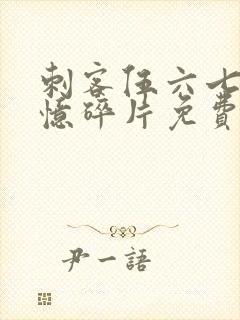 刺客伍六七
憶碎片免費
尹一語